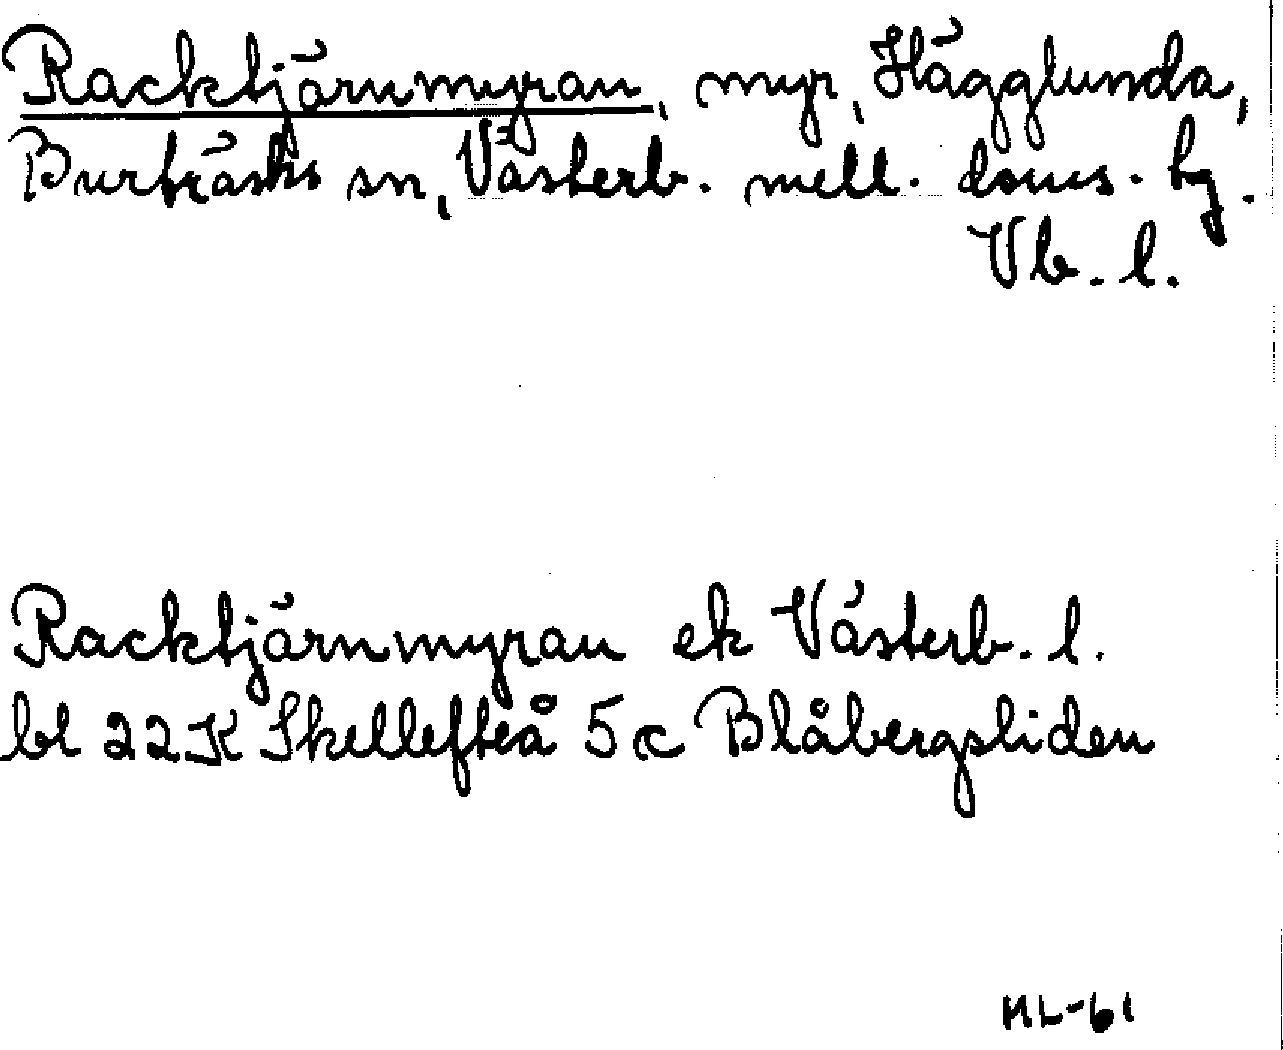 Racktjärnmyran, myr, Hägglunda,
Burträsks sn, Västerb. mell. doms. hg.
Vb. l.
Racktjärnmyran ek Västerb. l.
bl 22K Skellefteå 5c Blåbergsliden
ML-61